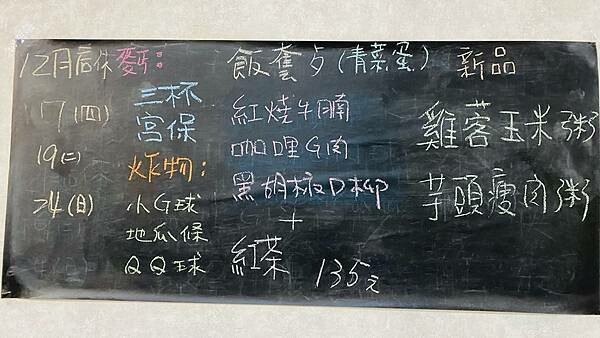 12月店休
7(四)
19(二)
24(日)
麪:
三杯
宮保
炸物:
小G球
地瓜條
QQ球
飯套歺(青菜蛋)
紅燒牛腩
咖哩G肉
黑胡椒
+
紅茶 135元
新品
雞茖玉米粥
芋頭瘦肉粥